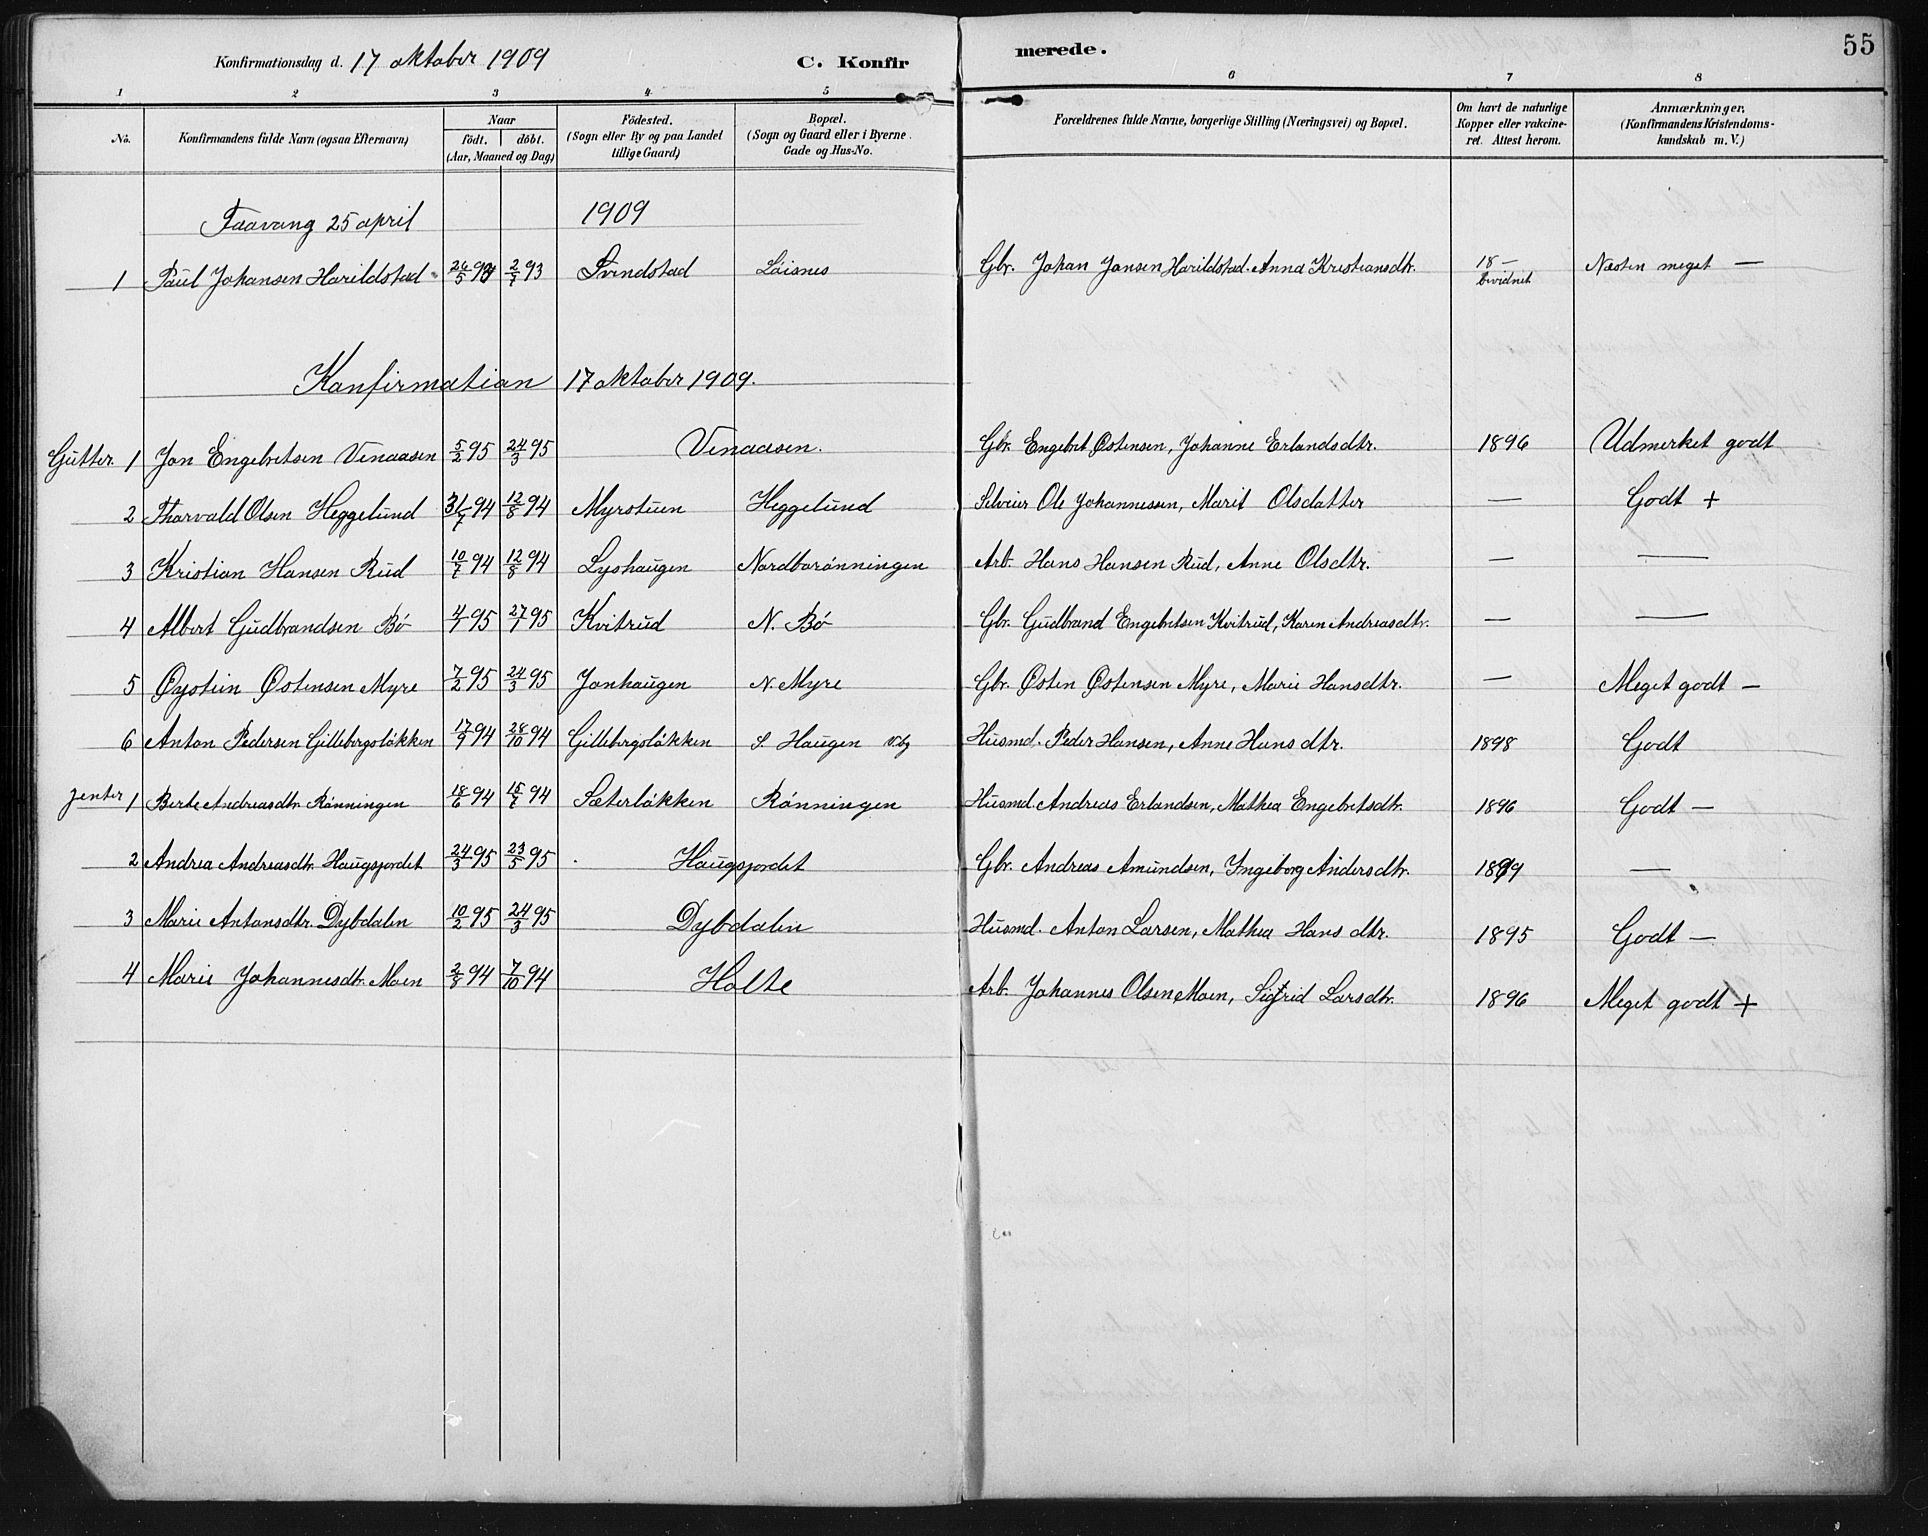 Konfirmationsdag d. 17 oktober 1909 C. Konfirmerede. 55
1 2 3 4 5 6 7 8
No. Konfirmandens fulde Navn (ogsaa Efternavn) Naar födt. döbt. (Aar, Maaned og Dag) Födested. (Sogn eller By og paa Landet tillige Gaard) Bopæl. (Sogn og Gaard eller i Byerne Gade og Hus-No. Forældrenes fulde Navne, borgerlige Stilling (Næringsvei) og Bopæl. Om havt de naturlige Kopper eller vakcineret. Attest herom. Anmærkninger. (Konfirmandens Kristendomskundskab m. V.)
Faavang 25 april 1909
1 Paul Johansen Harildstad 26/5 93 2/7 93 Svindstad Löisnes Gbr. Johan Jansen Harildstad. Anna Kristiansdtr. 18— bevidnet Næsten meget —
Konfirmation 17 oktober 1909.
Gutter 1 Jon Engebretsen Venaasen 5/2 95 24/3 95 Venaasen. Gbr. Engebret Østensen, Johanne Erlandsdtr. 1896 Udmerket godt
2 Thorvald Olsen Heggelund 31/7 94 12/8 94 Myrstuen Heggelund Selveier Ole Johannessen, Marit Olsdatter — Godt +
3 Kristian Hansen Rud 10/7 94 12/8 94 Lyshaugen Nordbørönningen Arb. Hans Hansen Rud, Anne Olsdtr. — —
4 Albert Gudbrandsen Bö 4/7 95 27/7 95 Kvitrud N. Bö Gbr. Gudbrand Engebretsen Kvitrud, Karen Andreasdtr. — —
5 Øystein Østensen Myre 7/2 95 24/3 95 Jonhaugen N. Myre Gbr. Østen Østensen Myre, Marie Hansdtr. — Meget godt —
6 Anton Pedersen Gillebergslökken 17/9 94 28/10 94 Gillebergslökken S. Haugen Husmd. Peder Hansen, Anne Hansdtr. 1898 Godt
Jenter 1 Berte Andreasdtr. Rönningen 18/6 94 15/7 94 Sæterlökken Rönningen Husmd. Andreas Erlandsen, Mathea Engebretsdtr. 1896 Godt —
2 Andrea Andreasdtr. Haugsjordet 24/3 95 23/5 95 Haugsjordet Gbr. Andreas Amundsen, Yngeborg Andersdtr. 1899 —
3 Marie Antonsdtr. Dybdalen 10/2 95 24/3 95 Dybdalen Husmd. Anton Larsen, Mathea Hansdtr. 1895 Godt —
4 Marie Johannesdtr. Moen 2/8 94 7/10 94 Holte Arb. Johannes Olsen Moen, Sigrid Larsdtr. 1896 Meget godt +